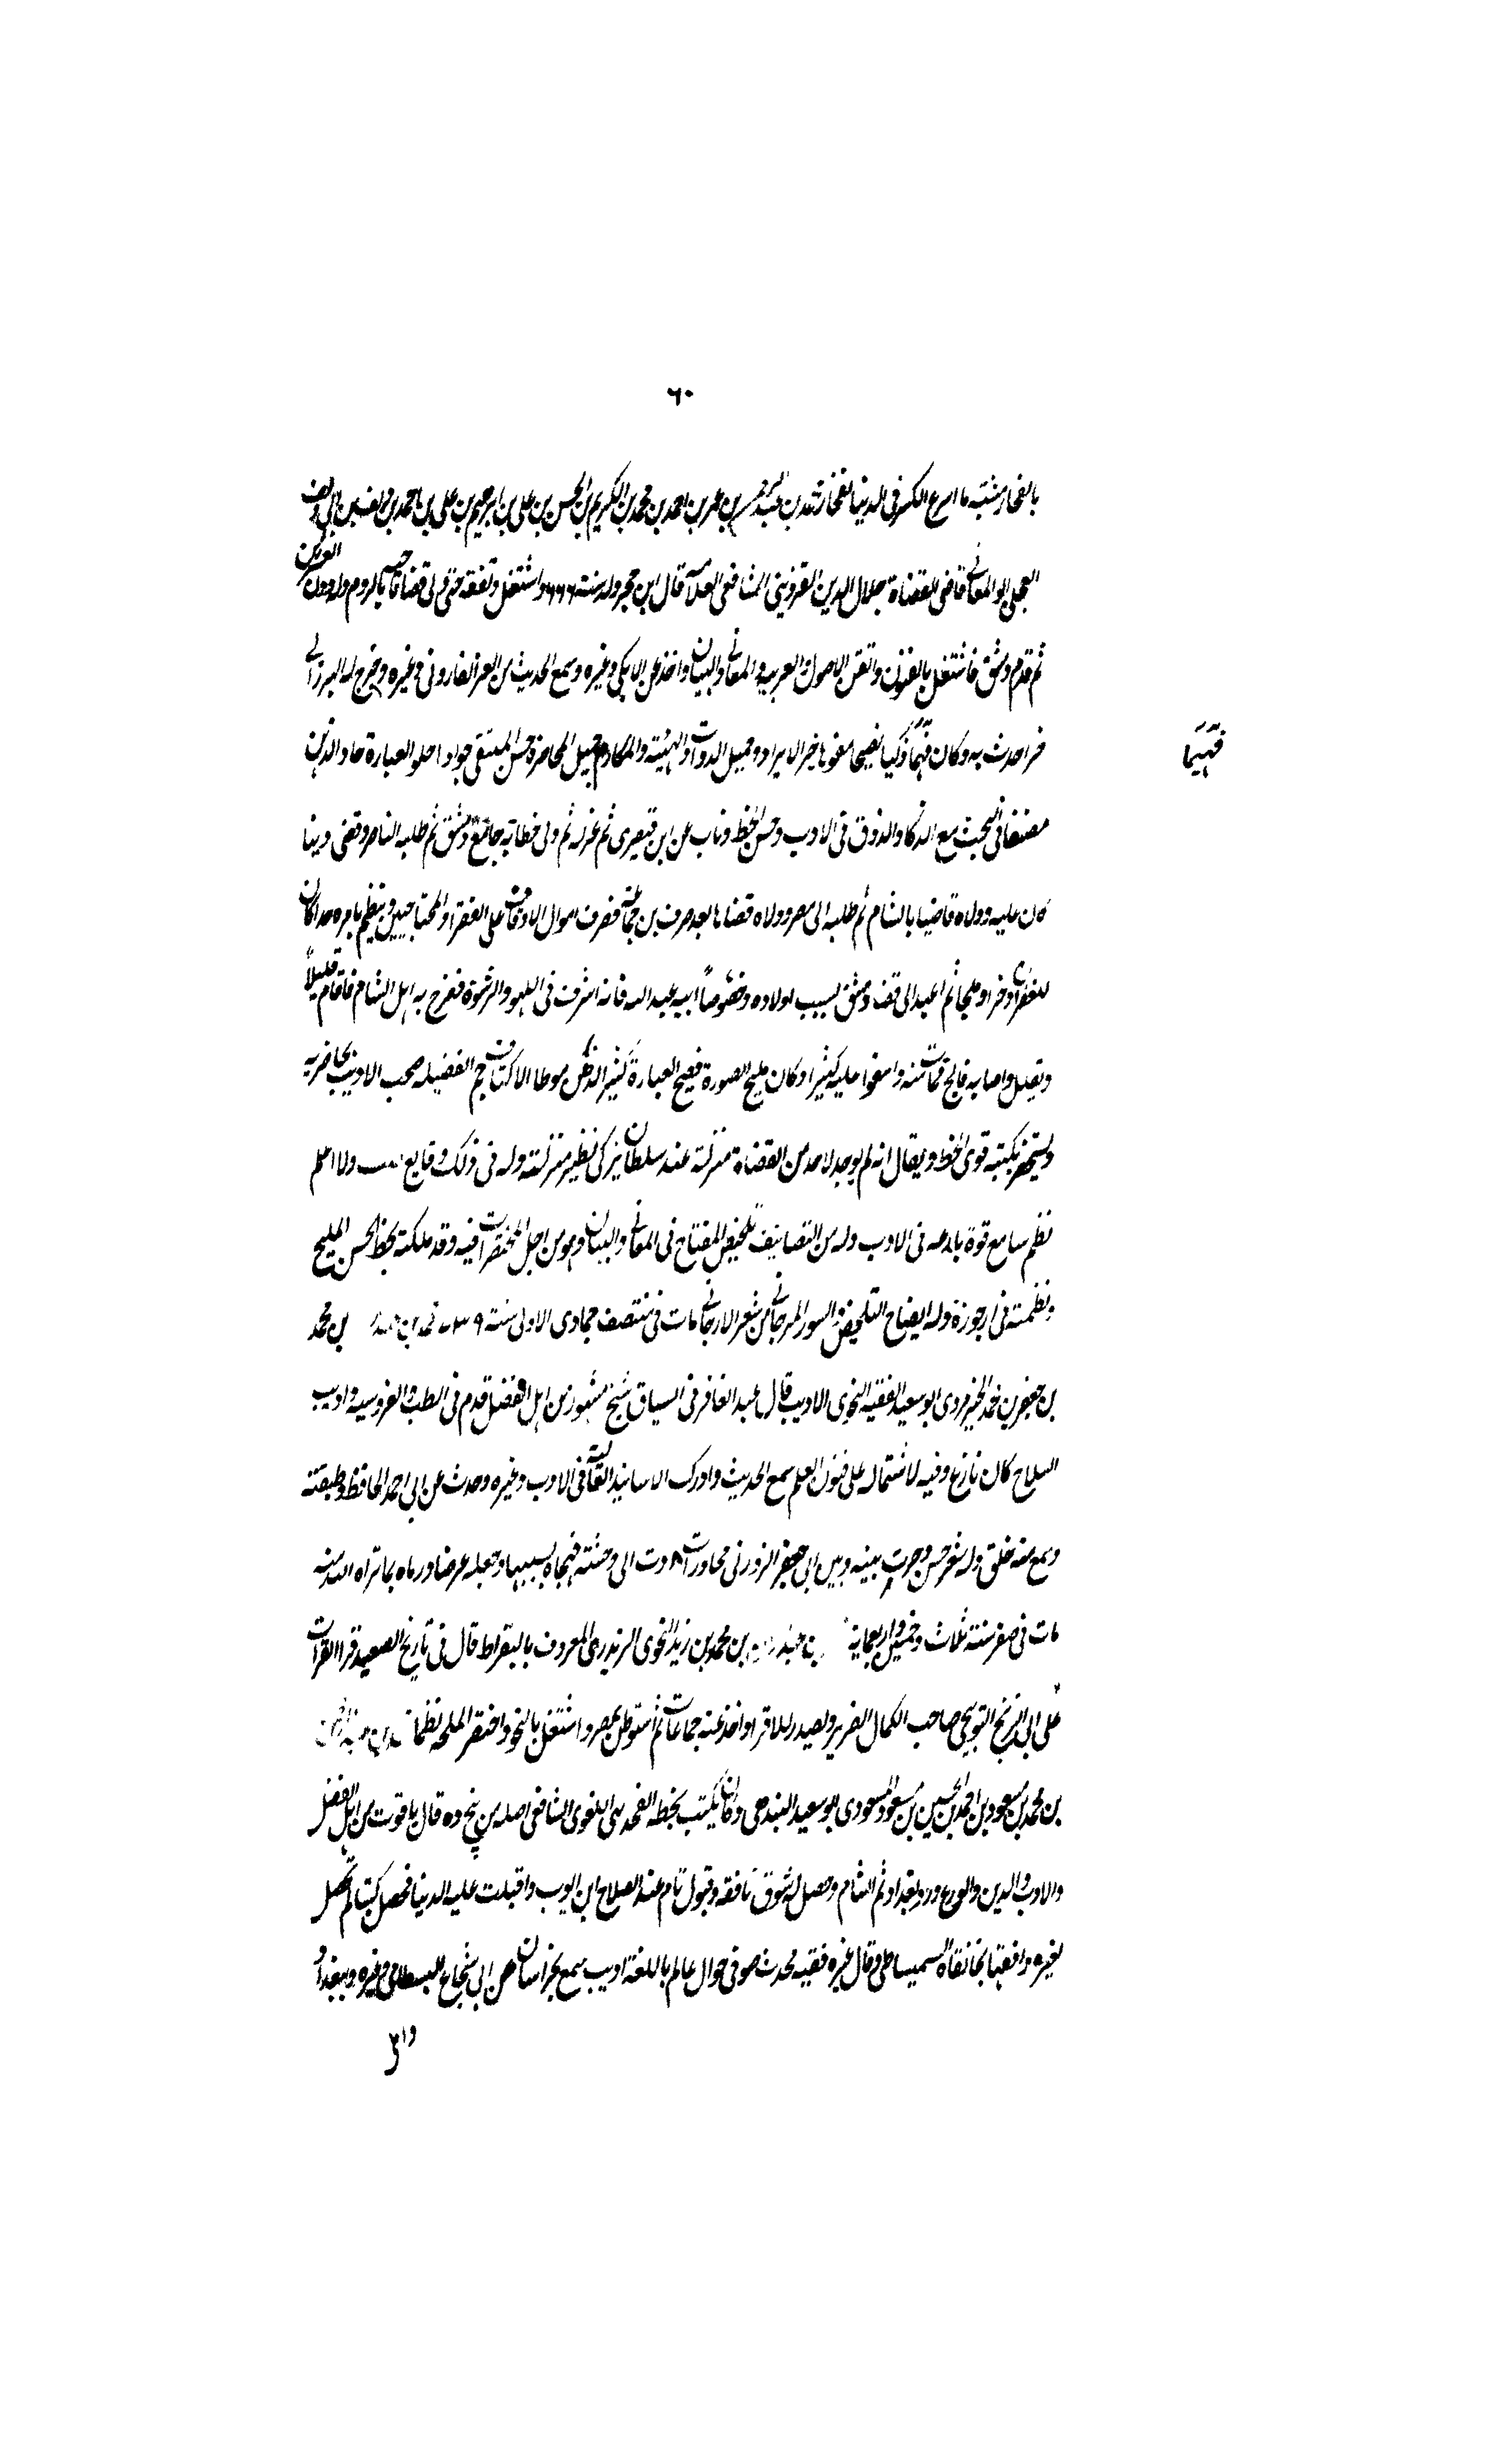 ٦٠
بالفخار مشتبه ما اسرع الكسر فى الدنيا لفخار محمد بن عبد الرحمن بن عمر بن احمد بن محمد بن الكريم بن الحسن بن على بن ابرهيم بن على بن احمد بن دلف بن ابى دلف
العجلى ابو المعالى قاضى القضاة جلال الدين القزوينى الشافعى العلامة قال ابن حجر ولد سنة ٦٦٦ واشتغل وتفقه حتى ولى قضا ناحية بالروم وله دون العشرين
ثم قدم دمشق فاشتغل بالفنون واتقن الاصول والعربيه والمعانى والبيان واخذ عن الايكى وغيره وسمع الحديث من العز الفاروثى وغيره وخرج له البرزالى
جزا حدث به وكان فهما ذكيا فصيحا مفوها حسن الايراد جميل الذات والهيئة والمكارم جميل المحاضرة حسن الملتقى جوادا حلو العبارة حاد الذهن
فهيما
منصفا فى البحث مع الذكا والذوق فى الادب وحسن الخط وناب عن ابن قيصرى ثم عزله ثم ولى خطابة جامع دمشق ثم طلبه الناصر وقضى دينا
كان عليه وولاه قاضيا بالشام ثم طلبه الى مصر وولاه قضاها بعد صرف بن جماعة فصرف اموال الاوقاف على الفقرا والمحتاجين وعظم امره جدا وكان
للفقرا ذخرا وملجا ثم اعيد الى قضا دمشق بسبب اولاده وخصوصا ابنه عبد الله فانه اسرف فى اللهو والرشوة ففرح به اهل الشام فاقام قليلا
وتعلل واصابه فالج فمات منه واسفوا عليه كثيرا وكان مليح الصورة فصيح العبارة كبير الذقن موطا الاكناف جم الفضيله يحب الادب يحاضر به
ويستحضر نكته قوى الخط ويقال انه لم يوجد لاحد من القضاة منزلة عند سلطان تركى نظير منزلته وله فى ذلك وقايع ولا اعلم
نظم شيا مع قوة باعه فى الادب وله من التصانيف تلخيص المفتاح فى المعانى والبيان وهو من اجل المختصرات فيه وقد ملكته بخطه الحسن المليح
ونظمته فى ارجوزة وله ايضاح التلخيص والسور المرجانى من شعر الارجانى مات فى منتصف جمادى الاولى سنة ٧٣٩ محمد بن عبد الرحمن بن محمد
بن جعفر بن محمد الجنزرودى ابو سعيد الفقيه النحوى الاديب قال عبد الغافر فى السياق شيخ مشهور من اهل الفضل قدم فى الطب والفروسيه وادب
السلاح كان بارع وقته لاشتماله على فنون العلم سمع الحديث وادرك الاسانيد العالية فى الادب وغيره وحدث عن ابى احمد الحافظ وطبقته
وسمع منه خلق وله شعر حسن وجرت بينه وبين ابى جعفر الزوزنى محاورات ادت الى وحشة فهجاه بسببها وجعله عرضا ورماه بما براه الله منه
مات فى صفر سنة ثلاث وخمسين واربعماية محمد بن عبد الرحمن بن محمد بن زيد النحوى الزيدرى المعروف بالبقراط قال فى تاريخ الصعيد قرا القرآت
على ابى الربيع البوتيجى صاحب الكمال الضرير وتصدر للاقرا واخذ عنه جماعات ثم استوطن بمصر واشتغل بالنحو واختصر الملحه نظما محمد بن عبد الرحمن
بن محمد بن مسعود بن احمد بن الحسين بن مسعود المسعودى ابو سعيد البندهى وكان يكتب بخطه الفنجديهى اللغوى الشافعى اصله من پنج ده قال ياقوت من اهل الفضل
والادب والدين والورع ورد بغداد ثم الشام وحصل له سوق نافقه وقبول تام عند الصلاح ابن ايوب واقبلت عليه الدنيا فحصل كتبا لم تحصل
لغيره ووقفها بخانقاه السميساطى وقال غيره فقيه محدث صوفى جوال عالم باللغة اديب سمع بخراسان من ابى شجاع البسطامى وغيره وببغداد